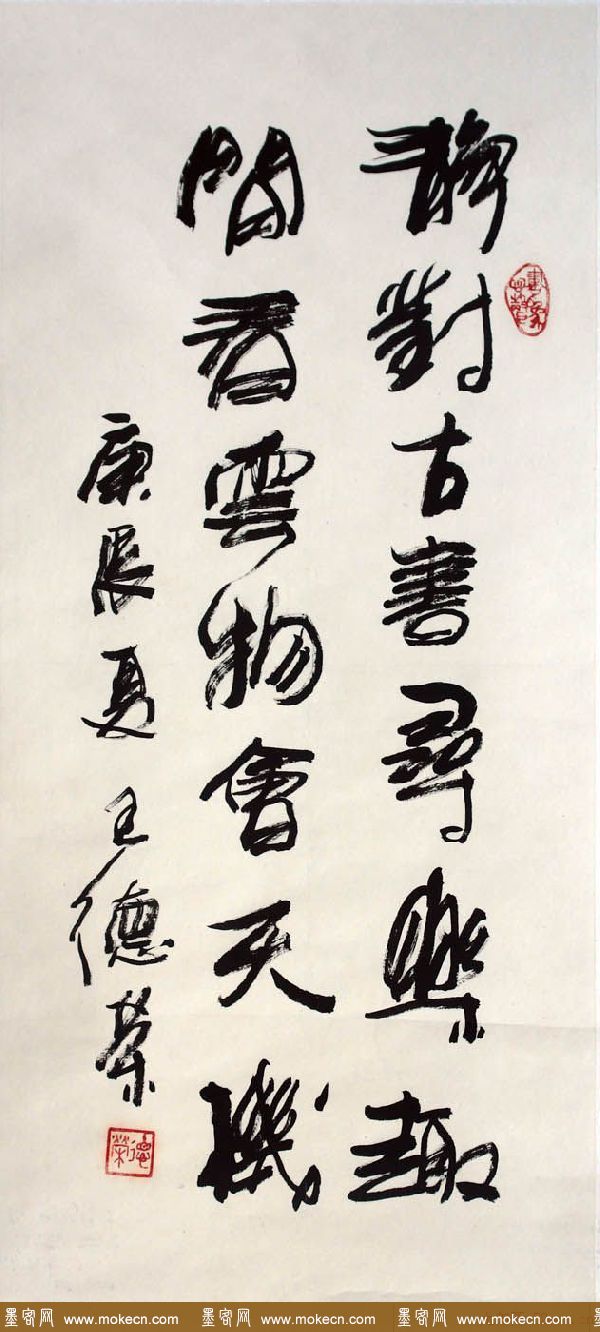 靜對古書尋樂趣
閒看雲物會天機
庚辰夏 王德榮
德榮
墨客网 www.mokecn.com 墨客网 www.mokecn.com 墨客网 www.mokecn.com